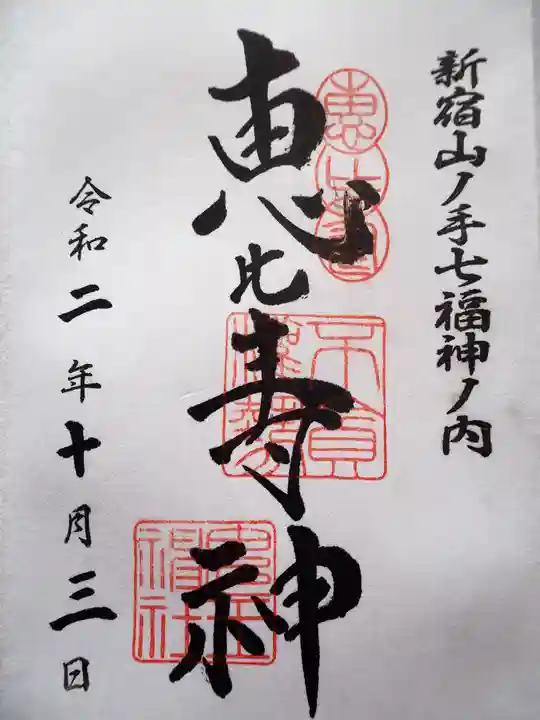 新宿山ノ手七福神ノ内
恵比寿神
令和二年十月三日
恵比寿